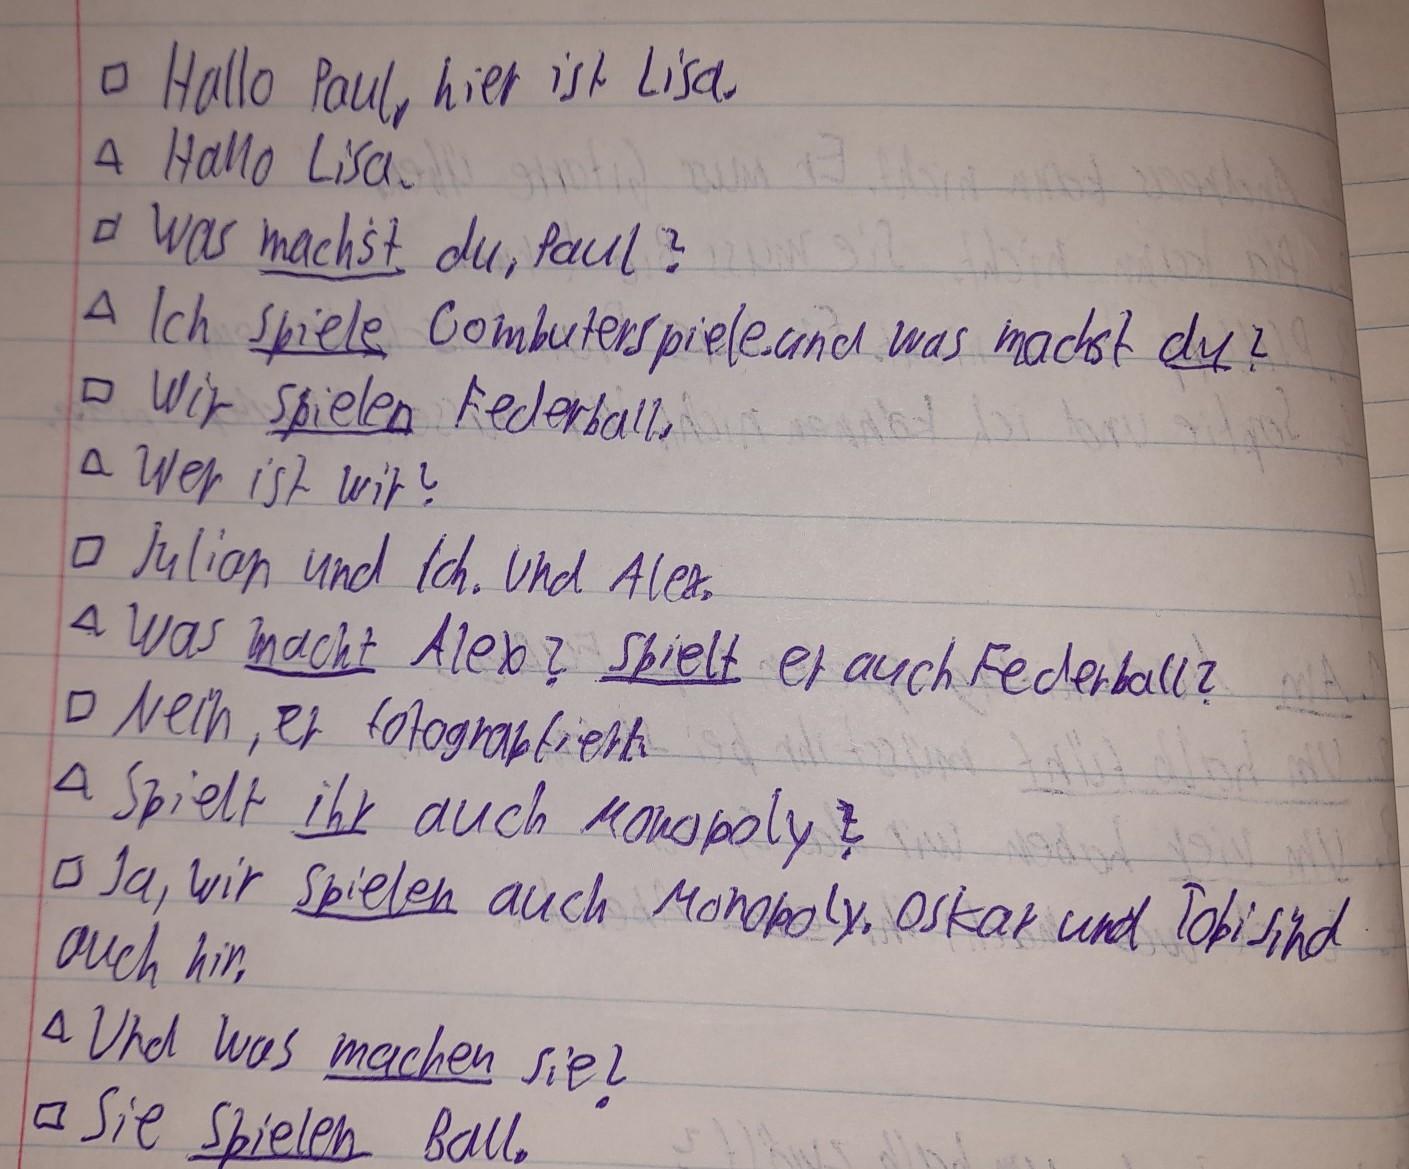 □ Hallo Paul, hier ist Lisa.
△ Hallo Lisa.
□ Was machst du, Paul?
△ Ich spiele Combuterspiele.und was machst du?
□ Wir spielen Federball.
△ Wer ist wir?
□ Julian und Ich. Und Alex.
△ Was macht Alex? Spielt er auch Federball?
□ Nein, er fotografiert.
△ Spielt ihr auch Monopoly?
□ Ja, wir spielen auch Monopoly. Oskar und Tobi sind
auch hir.
△ Und was machen sie?
□ Sie spielen Ball.